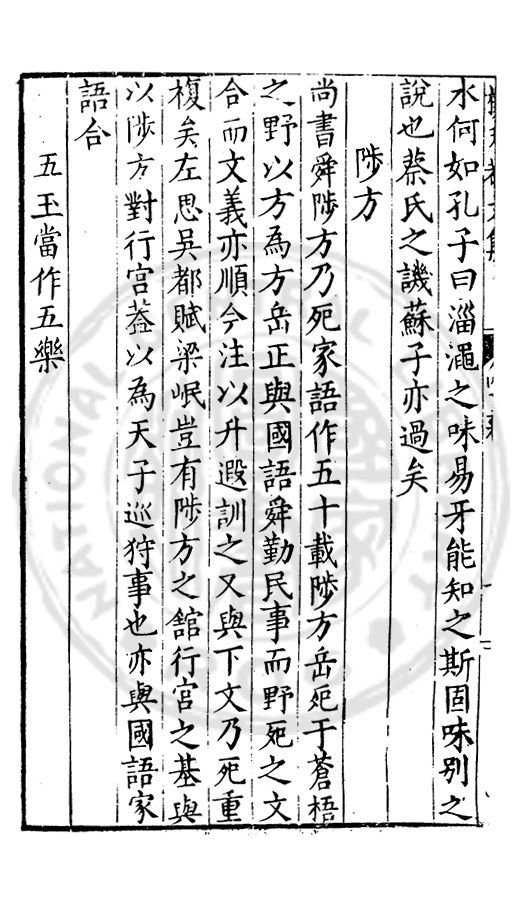 水何如孔子曰淄澠之味易牙能知之斯固味別之
說也蔡氏之譏蘇子亦過矣
陟方
尚書舜陟方乃死家語作五十載陟方岳死于蒼梧
之野以方為方岳正與國語舜勤民事而野死之文
合而文義亦順今注以升遐訓之又與下文乃死重
複矣左思吳都賦梁岷豈有陟方之舘行宮之基與
以陟方對行宮葢以為天子巡狩事也亦與國語家
語合
五玉當作五樂
NATIONAL